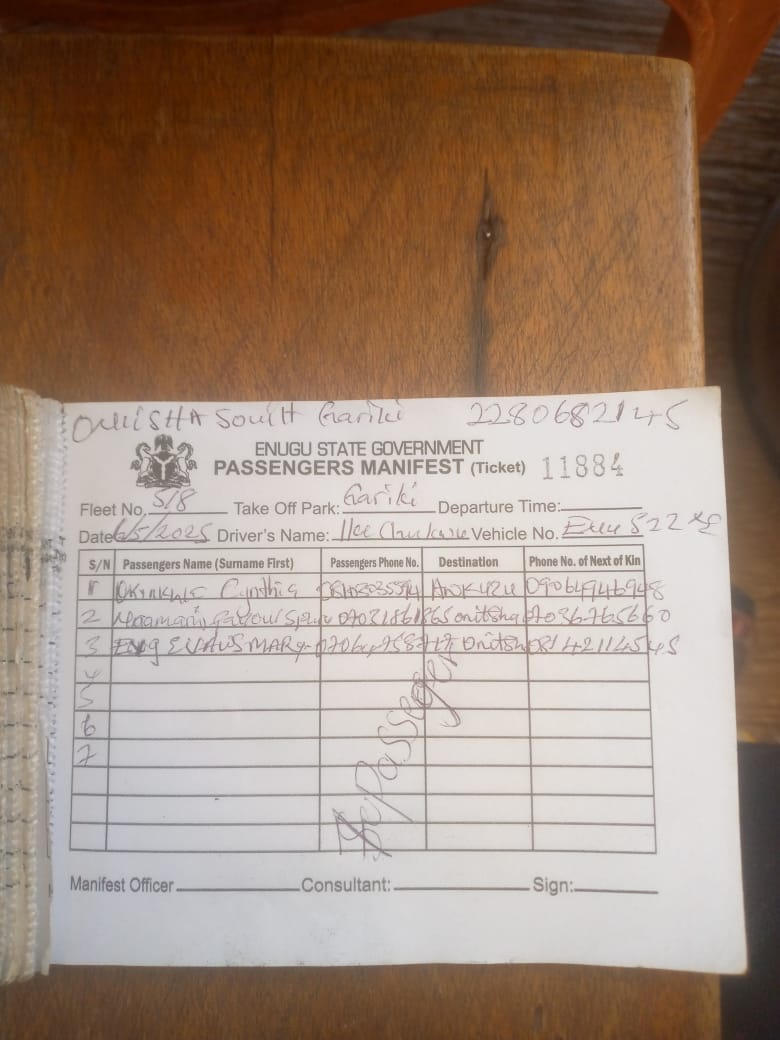 ONISHA South Gariki 2280682145
ENUGU STATE GOVERNMENT
PASSENGERS MANIFEST (Ticket) 11884
Fleet No. 518 Take Off Park: Gariki Departure Time:
Date 6/5/2025 Driver's Name: Vehicle No. Enu 522
S/N Passengers Name (Surname First) Passengers Phone No. Destination Phone No. of Next of Kin
1 Cynthia 09064946948
2 07031861865 onitsha 07036765660
3 Eng EVANS MARY Onitsha 08142114545
4
5
6
7
Passenger
Manifest Officer Consultant: Sign: